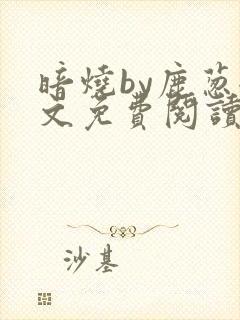 暗燒by鹿葱
文免費閱讀
沙基